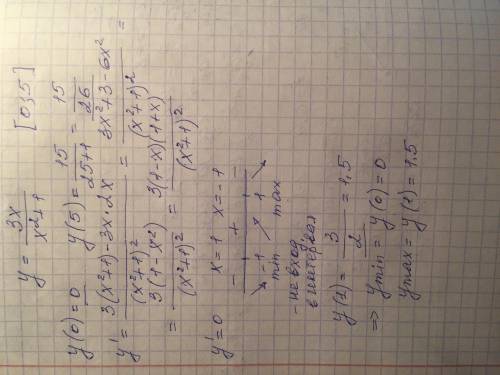 y = 3x/(x²+1) [0;5]
y(0)=0 y(5) = 15/(25+1) = 15/26
y' = (3(x²+1)-3x·2x)/(x²+1)² = (3x²+3-6x²)/(x²+1)² =
= 3(1-x²)/(x²+1)² = 3(1-x)(1+x)/(x²+1)²
y'=0 x=1 x=-1
- + -
↘ -1 ↗ 1 ↘
min max
-не вход
в интервал
y(1) = 3/2 = 1,5
⇒ ymin = y(0) = 0
ymax = y(1) = 1,5